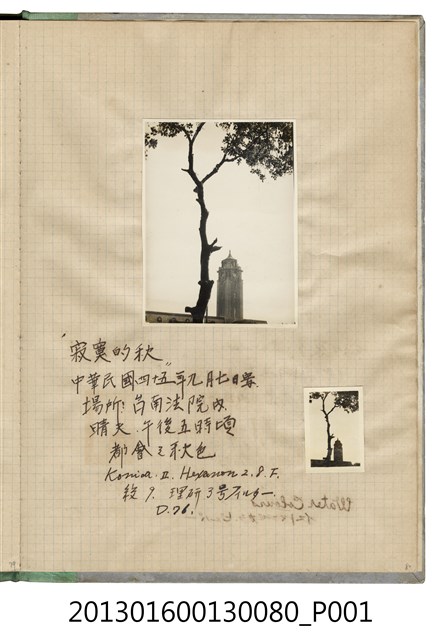 "寂寞的秋"
中華民國四十五年九月七日
場所:台南法院内
晴天.午後五時頃
都會之秋色
Konica. II. Hexanon 2.8. F.
絞 9. 理研 3号フィルター.
D.76.
Water Colours
201301600130080_P001